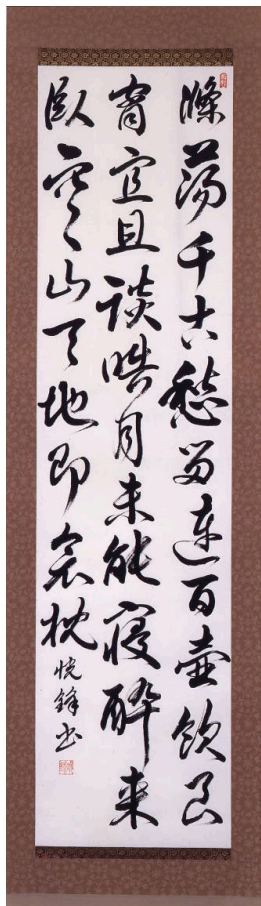 滌蕩千古愁留連百壺飲良
宵宜且談晧月未能寝酔来
臥空山天地即衾枕
悦鋒書